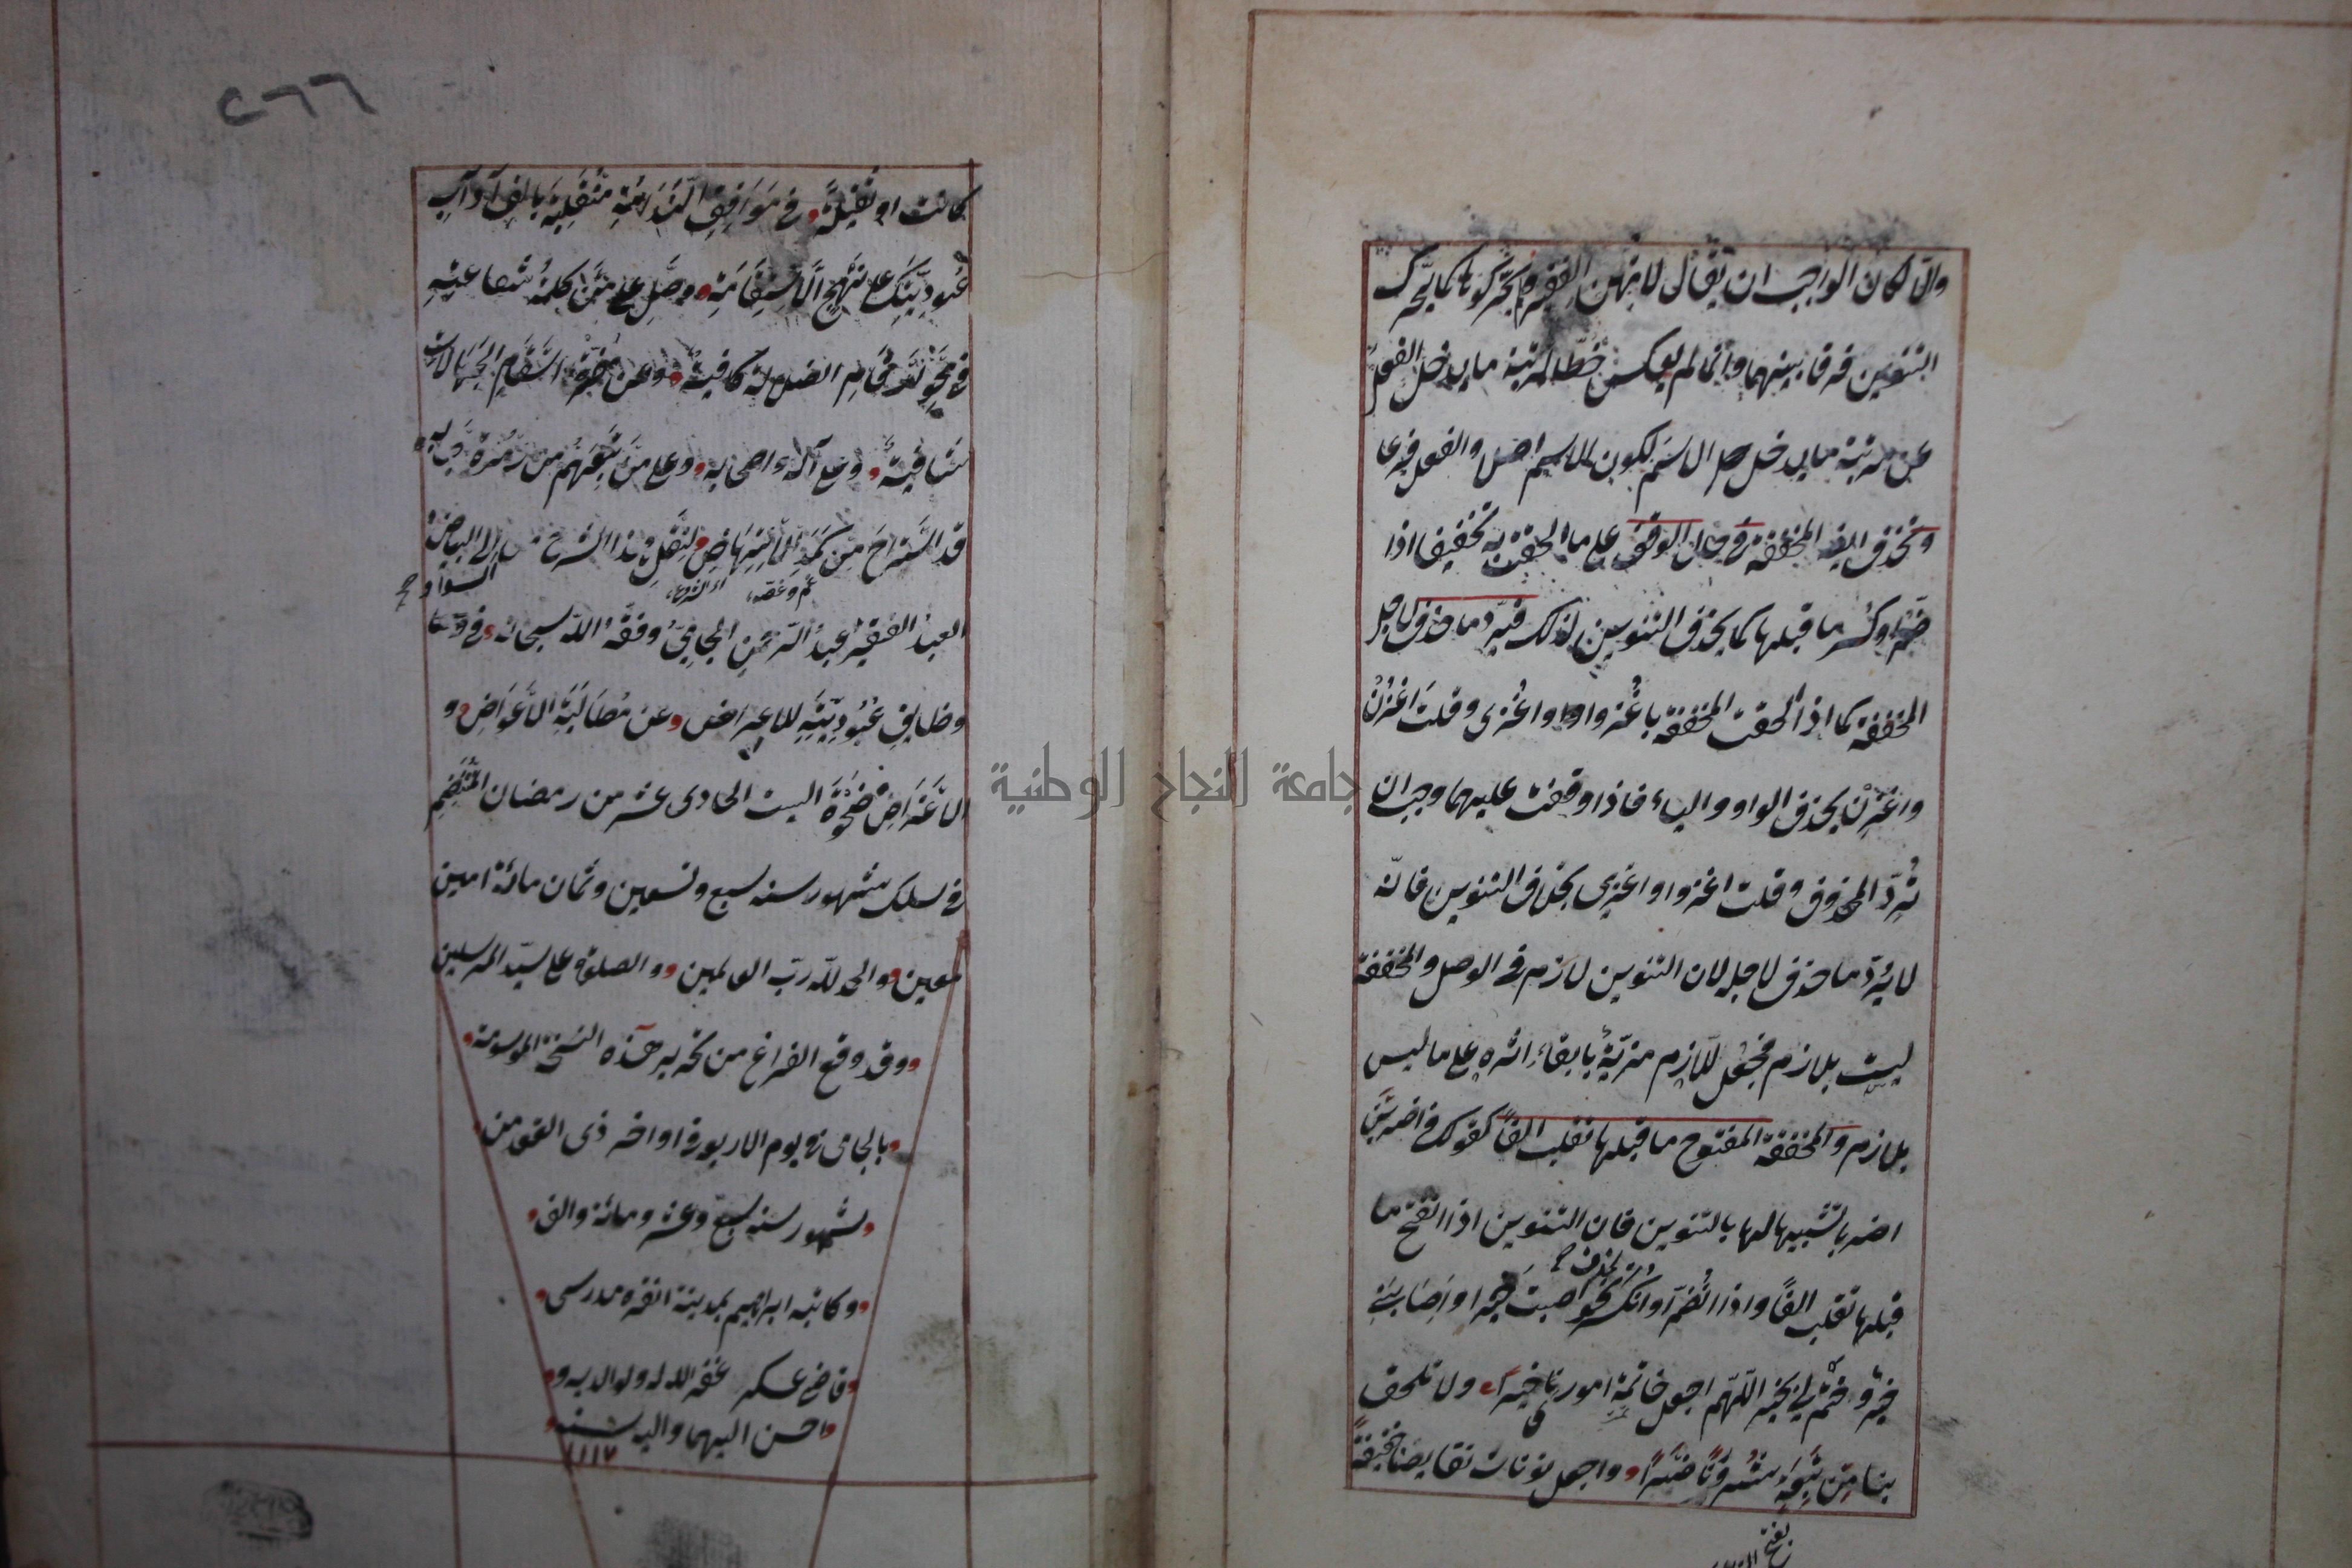 والّا لكان الواجب ان يقال لا تهين الفقير وبتحركونها كما يتحرك
التنوين فرقا بينهما وانما لم يعكس حطّا لمرتبة ما يدخل الفعل
عن مرتبة ما يدخل الاسم لكون الاسم اصلا والفعل فرعا
وتحذف اى المخففة فى حال الوقف على ما لحقت به تخفيفا اذا
ضمّ او كسر ما قبلها كما يحذف التنوين لذلك فيردّ ما حذف لاجل
المخففة كما اذا الحقت المخففة باغزوا واغزى وقلت اغزُنْ
واغزِنْ بحذف الواو والياء فاذا وقفت عليهما وجب ان
تُردّ المحذوف وقلت اغزوا واغزى بخلاف التنوين فانّه
لا يُردّ ما حذف لاجله لان التنوين لازم فى الوصل والمخففة
ليست بلازم فجعل للّازم مزيّةٌ بابقاء اثره على ما ليس
بلازم والمخففة المفتوح ما قبلها تقلب الفًا كقولك فى اضربَنْ
اضربا تشبيها لها بالتنوين فان التنوين اذا انفتح ما
قبلها تقلب الفًا واذا انضمّ او انكسر تحذف نحو اصبت خيرا واصابنى
خيرٌ وختم لى بخير اللّهمّ اجعل خاتمة امورنا خيرًا ولا تلحق
بنا من تبعة شرورنا ضيرًا واجعل نونات نقايصنا خفيفةً
٢٦٦
كانت او ثقيلةً فى مواقف الندامة منقلبة بالف آداب
عبوديتك على نهج الاستقامة وصلّ على من كلمةُ شفاعته
فى محو ارقام الضلالة كافية وعن مضرّة اسقام الجهالات
شافية وعلى آله واصحابه وعلى من تبعهم من زمرة احبابه
قد استراح من كدّ الانتهاض لنقل هذا الشرح من السواد الى البياض
العبد الفقير عبد الرحمن الجامى وفقه الله سبحانه فى
وظايف عبوديّته للاعراض عن مطالبة الاعواض و
الاغراض ضحوة السبت الحادى عشر من رمضان المنتظم
فى سلك شهور سنة سبع وتسعين وثمان مائة امين
معين والحمد للّه ربّ العالمين والصلوة على سيّد المرسلين
وقد وقع الفراغ من تحرير هذه النسخة الموسومة
بالجامى فى يوم الاربور فى اواخر ذى القعو من
شهور سنه سبع وعشر ومائة والف
وكاتبه ابراهيم بمدينة انقره مدرسى
قاضى عسكر غفر الله له ولوالديه و
احسن اليهما واليه سنه
١١١٧
جامعة النجاح الوطنية